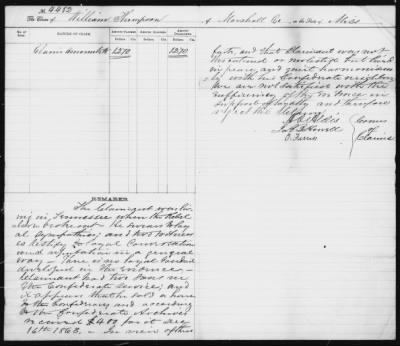 No. 4452
The Claim of William Thompson of Marshall Co. in the State of Miss
No. of Item.
NATURE OF CLAIM.
AMOUNT CLAIMED.
AMOUNT ALLOWED.
AMOUNT DISALLOWED.
Dolls. Cts. Dolls. Cts. Dolls. Cts.
REMARKS.
The Claimant was liv
ing in Tennessee when the Rebel
lion broke out. He swears to loy
al sympathies; and two witnesses
testify to loyal conversation
and reputation in a general
way.
developed in the evidence.
Claimant had two sons in
the Confederate service; and
it appears that he sold a horse
to the Confederacy and according
to the Confederate Archives
received $400 for it Dec
16th 1863. In view of these
facts, and that Claimant was not
threatened or molested but lived
in peace and quiet harmoniously
with his Confederate neighbors
we are not satisfied with the
sufficiency of the evidence in
support of loyalty and therefore
reject the claim.
A. O. Aldis
J. B. Howell
O. Ferriss
Comrs
of
Claims